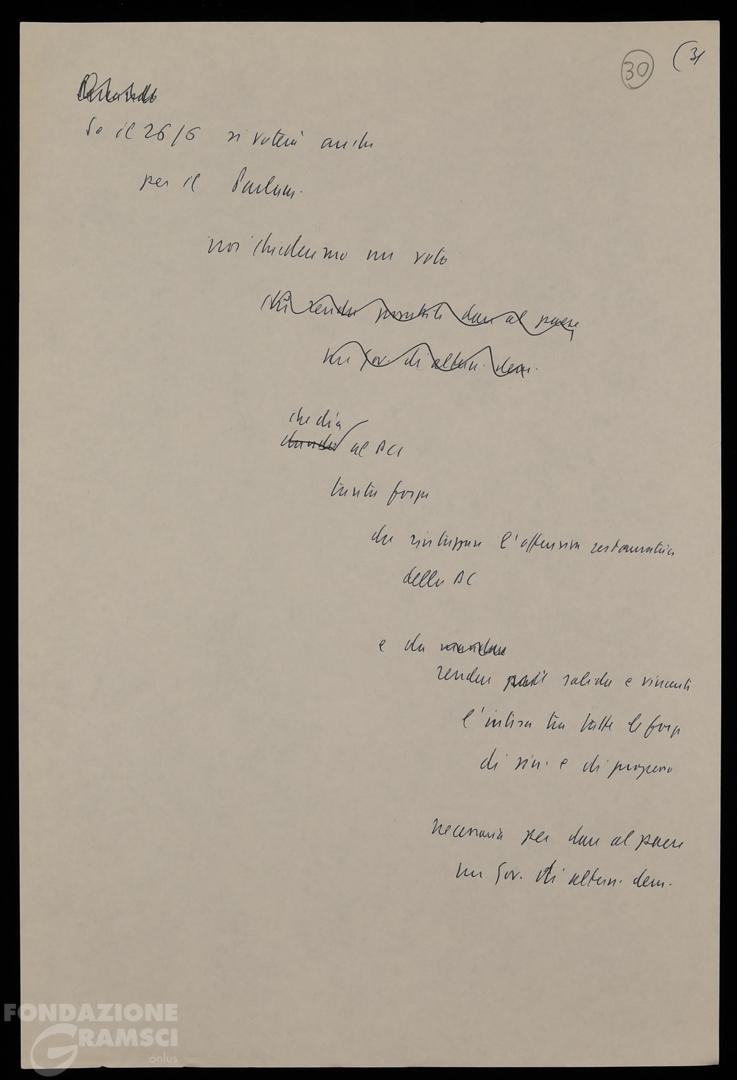 30 (31
Se il 26/6 si voterà anche
per il Parlam.
noi chiederemo un voto
che renda possibile dare al paese
un Gov. di altern. dem.
che dia
dando al PCI
tanta forza
da sviluppare l'offensiva restauratrice
della DC
e da
render solida e vincente
l'intesa tra tutte le forze
di sin. e di progresso
necessaria per dare al paese
un Gov. di altern. dem.
FONDAZIONE
GRAMSCI
onlus